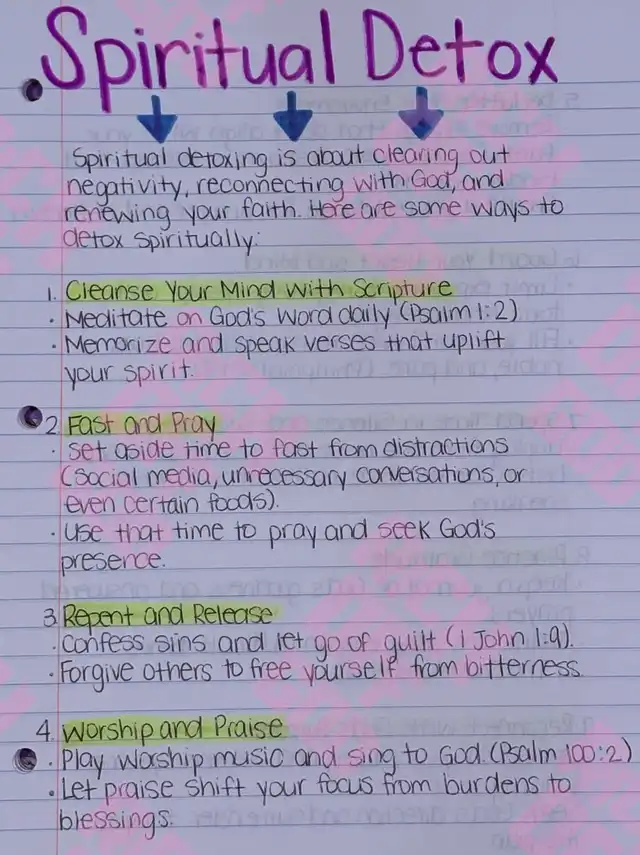 Spiritual Detox
Spiritual detoxing is about clearing out
negativity, reconnecting with God, and
renewing your faith. Here are some ways to
detox spiritually:
1. Cleanse Your Mind with Scripture
· Meditate on God's Word daily (Psalm 1:2)
· Memorize and speak verses that uplift
your spirit.
2. Fast and Pray
· Set aside time to fast from distractions
(social media, unnecessary conversations, or
even certain foods).
· Use that time to pray and seek God's
presence.
3. Repent and Release
· Confess sins and let go of guilt (1 John 1:9).
· Forgive others to free yourself from bitterness.
4. Worship and Praise
· Play worship music and sing to God. (Psalm 100:2)
· Let praise shift your focus from burdens to
blessings.